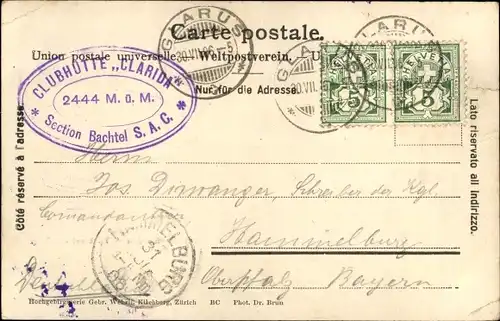 Carte postale.
Union postale universelle. — Weltpostverein. U
Nur für die Adresse
CLUBHÜTTE „CLARIDA"
2444 M. ü. M.
Section Bachtel S. A. C.
GLARUS
30.VII.06.
GLARUS
30.VII.
HELVETIA
5
5
Côté réservé à l'adresse
Lato riservato all indirizzo.
Herrn
Jos. Schreiber der Kgl.
Hammelburg
Oberpfalz Bayern
HAMMELBURG
31
Hochgebirgsserie Gebr. Wehrli, Kilchberg, Zürich BC Phot. Dr. Brun